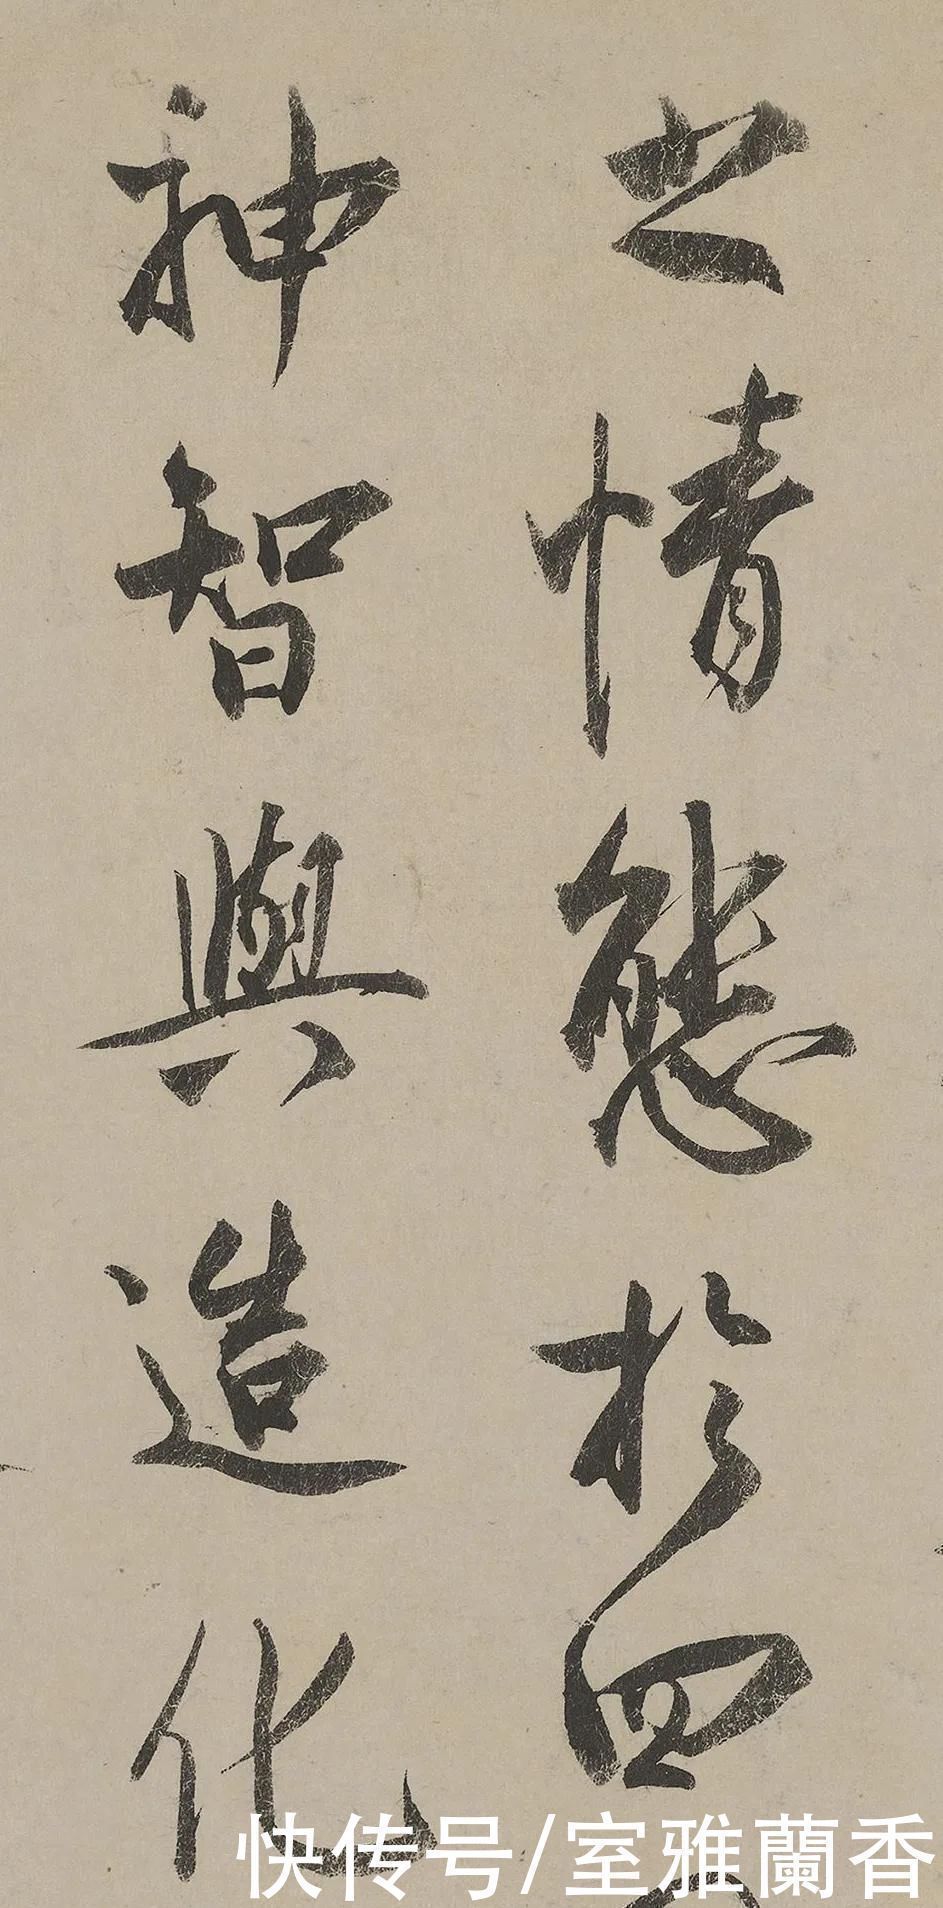 之情態於四
神智與造化
快传号/室雅蘭香